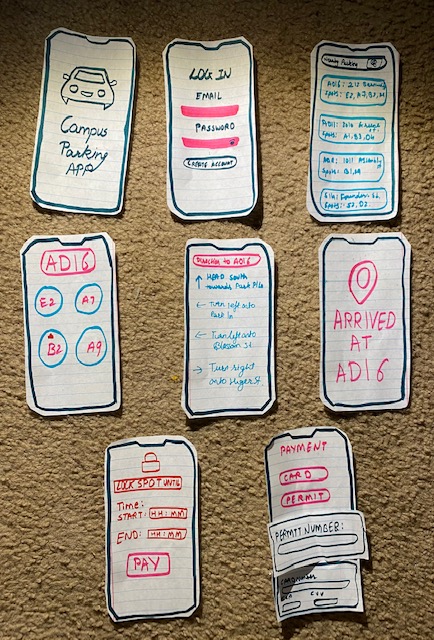 Campus
Parking
APP
LOG IN
EMAIL
PASSWORD
CREATE ACCOUNT
Parking
AD16: 210
Spots: E2, A7, B2, A9
Spots: A1, B3, D4
Spots: B1, A9
Spots: E2, D2
AD16
E2
A7
B2
A9
Direction to AD16
HEAD South
towards Park Pl.
Turn left onto
Park Ln
Turn left onto
Blossom St.
Turn right
onto Huger St.
ARRIVED
AT
AD16
LOCK SPOT UNTIL
Time:
START: HH:MM
END: HH:MM
PAY
PAYMENT
CARD
PERMIT
PERMIT NUMBER:
CARD NUMBER
CVV